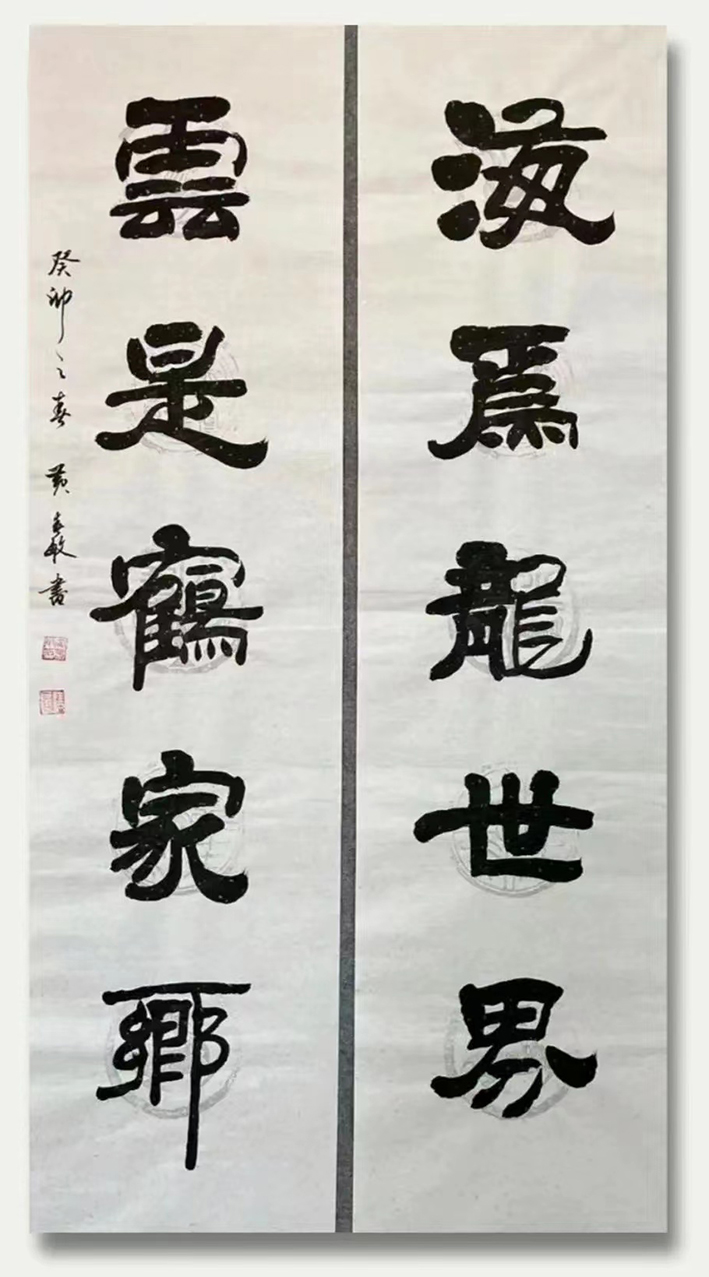 海為龍世界
雲是鶴家鄉
癸卯之春 黄 敏書